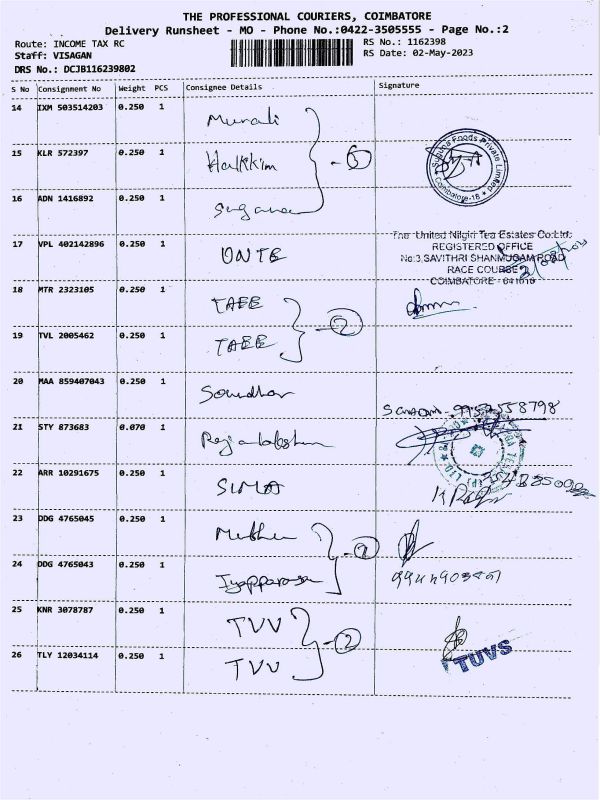 THE PROFESSIONAL COURIERS, COIMBATORE
Delivery Runsheet - MO - Phone No.:0422-3505555 - Page No.:2
Route: INCOME TAX RC
RS No.: 1162398
Staff: VISAGAN
RS Date: 02-May-2023
DRS No.: DCJB116239802
S No Consignment No Weight PCS Consignee Details Signature
14 IXM 503514203 0.250 1 Murali
15 KLR 572397 0.250 1 Hakkim
Suguna Foods Private Limited
Coimbatore-18
16 ADN 1416892 0.250 1 Suguna
17 VPL 402142896 0.250 1 UNTE
The United Nilgiri Tea Estates Co.Ltd.
REGISTERED OFFICE
No:3,SAVITHRI SHANMUGAM ROAD
RACE COURSE
COIMBATORE - 641018
18 MTR 2323105 0.250 1 TAEE
2
19 TVL 2005462 0.250 1 TAEE
20 MAA 859407043 0.250 1 Soundhar
21 STY 873683 0.070 1
22 ARR 10291675 0.250 1 SIMA
23 DDG 4765045 0.250 1
24 DDG 4765043 0.250 1 Iyapparasa
25 KNR 3078787 0.250 1 TVV
2
26 TLY 12034114 0.250 1 TVV
TUVS